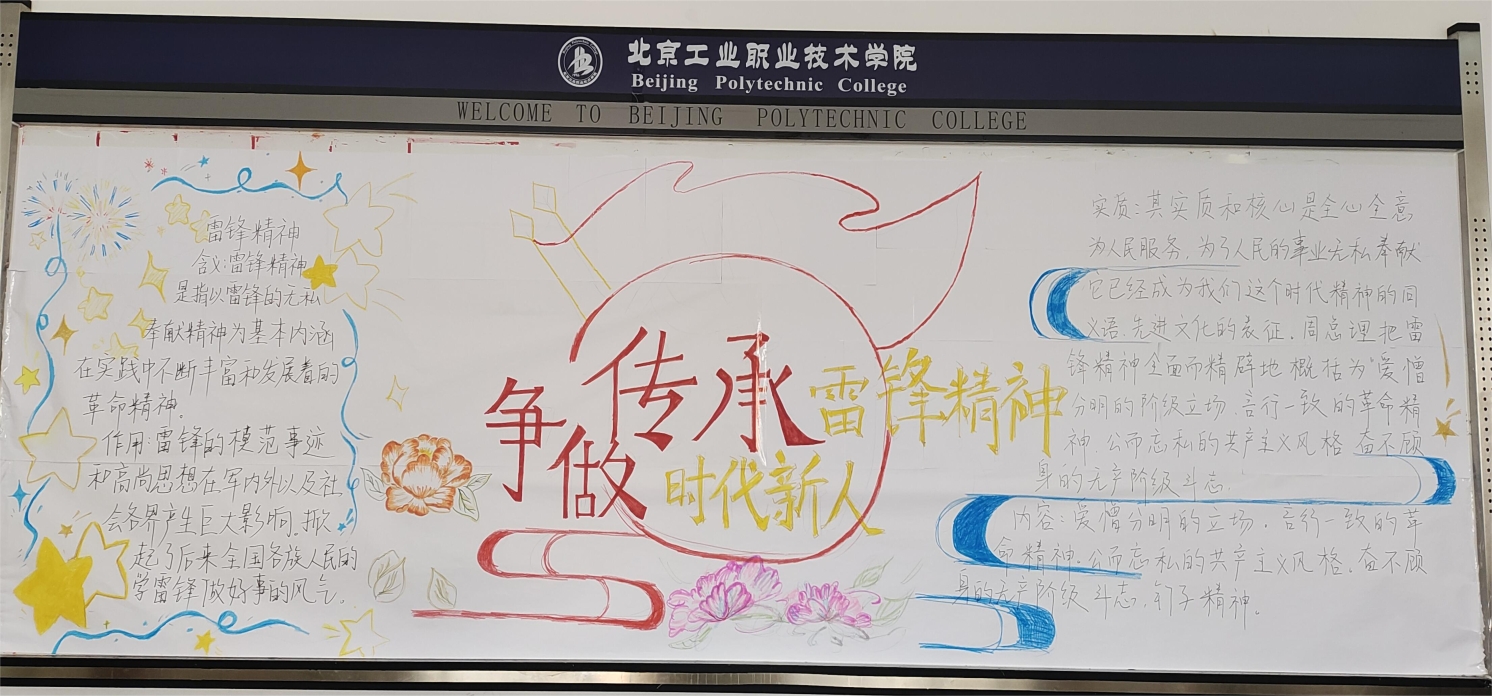 北京工业职业技术学院
Beijing Polytechnic College
WELCOME TO BEIJING POLYTECHNIC COLLEGE
雷锋精神
含义:雷锋精神
是指以雷锋的无私
奉献精神为基本内涵
在实践中不断丰富和发展着的
革命精神。
作用:雷锋的模范事迹
和高尚思想在军内外以及社
会各界产生巨大影响。掀
起了后来全国各族人民的
学雷锋做好事的风气。
传承雷锋精神
争做时代新人
实质:其实质和核心是全心全意
为人民服务,为了人民的事业无私奉献
它已经成为我们这个时代精神的同
义语、先进文化的表征,周总理把雷
锋精神全面而精辟地概括为“爱憎
分明的阶级立场、言行一致的革命精
神、公而忘私的共产主义风格、奋不顾
身的无产阶级斗志
内容:爱憎分明的立场、言行一致的革
命精神、公而忘私的共产主义风格、奋不顾
身的无产阶级斗志、钉子精神。